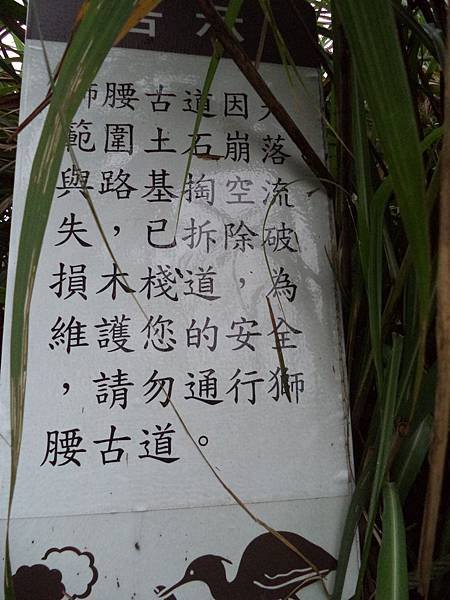 告示
獅腰古道因大
範圍土石崩落
與路基掏空流
失，已拆除破
損木棧道，為
維護您的安全
，請勿通行獅
腰古道。